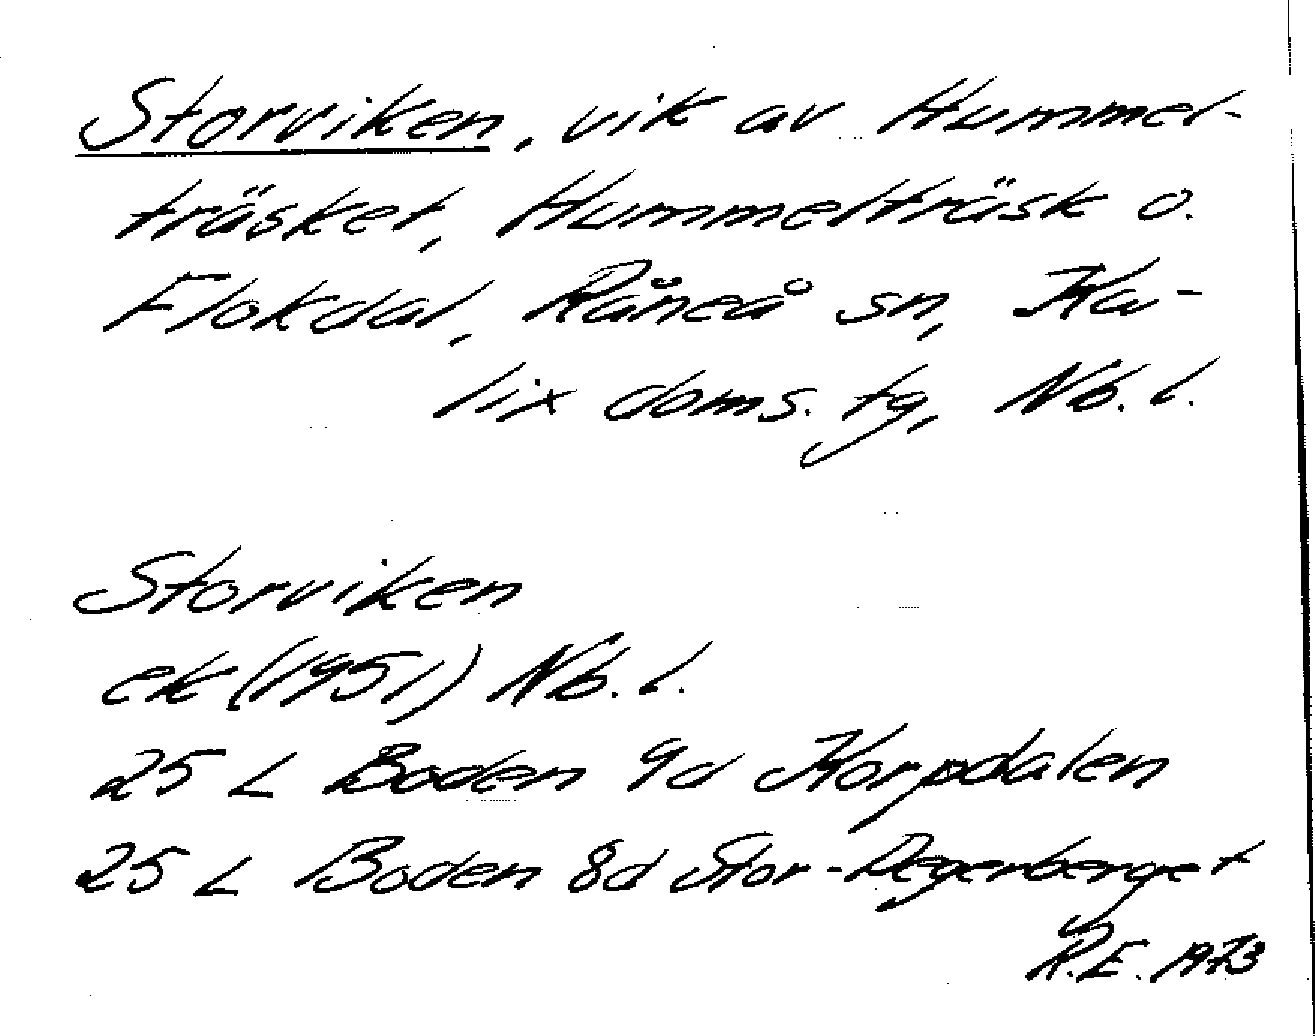 Storviken, vik av Hummel-
träsket, Hummelträsk o.
Flokdal, Råneå sn, Ka-
lix doms. tg, Nb. l.
Storviken
ek (1951) Nb. l.
25 L Boden 9d Korpdalen
25 L Boden 8d Stor-Degerberget
R.E. 1973